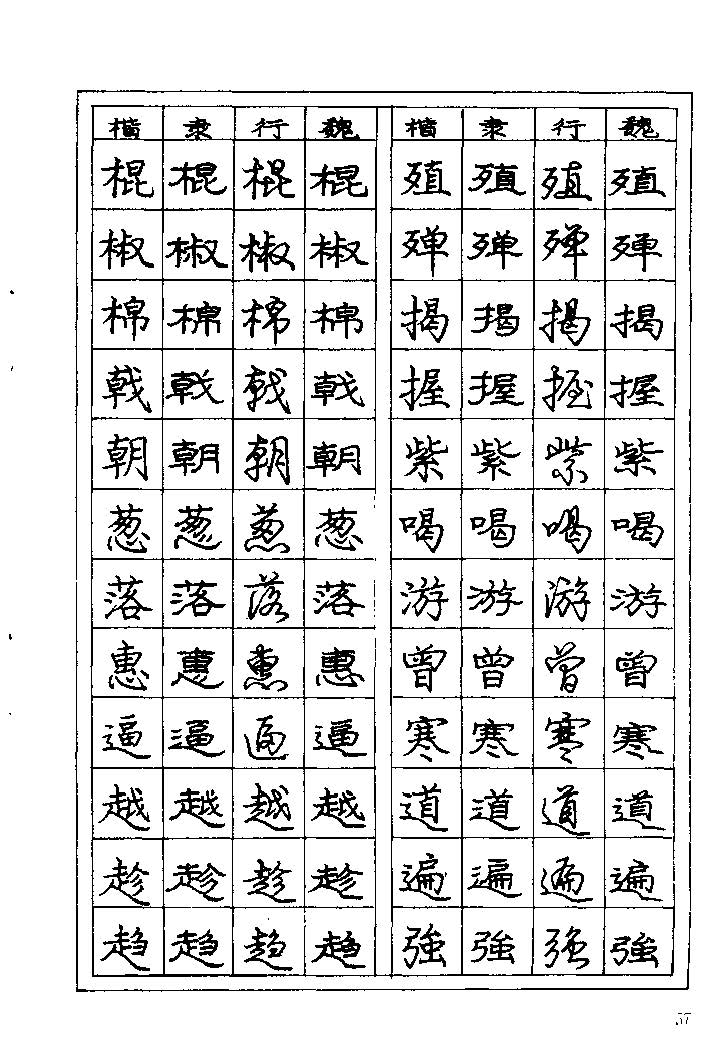 楷 隶 行 魏 楷 隶 行 魏
棍 棍 棍 棍 殖 殖 殖 殖
椒 椒 椒 椒 殚 殚 殚 殚
棉 棉 棉 棉 揭 揭 揭 揭
戟 戟 戟 戟 握 握 握 握
朝 朝 朝 朝 紫 紫 紫 紫
葱 葱 葱 葱 喝 喝 喝 喝
落 落 落 落 游 游 游 游
惠 惠 惠 惠 曾 曾 曾 曾
逼 逼 逼 逼 寒 寒 寒 寒
越 越 越 越 道 道 道 道
趁 趁 趁 趁 遍 遍 遍 遍
趋 趋 趋 趋 強 強 強 強
57